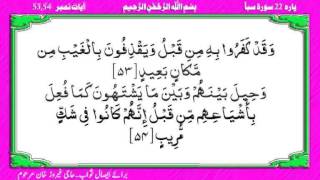 پارہ 22 سورۃ سبا
بِسْمِ اللّٰهِ الرَّحْمٰنِ الرَّحِيْمِ
آیات نمبر 53,54
وَقَدْ كَفَرُوا بِهِ مِن قَبْلُ وَيَقْذِفُونَ بِالْغَيْبِ مِن
مَّكَانٍ بَعِيدٍ [۵۳]
وَحِيلَ بَيْنَهُمْ وَبَيْنَ مَا يَشْتَهُونَ كَمَا فُعِلَ
بِأَشْيَاعِهِم مِّن قَبْلُ إِنَّهُمْ كَانُوا فِي شَكٍّ
مُّرِيبٍ [۵۴]
برائے ایصال ثواب۔ حاجی فیروز خان مرحوم